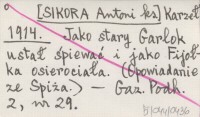 [SIKORA Antoni ks] Karzeł
1914. Jako stary Garlok
ustał śpiewać i jako Fijoł-
ka osierociała. (Opowiadanie
ze Spiża.) — Gaz. Podh.
2, nr 29.